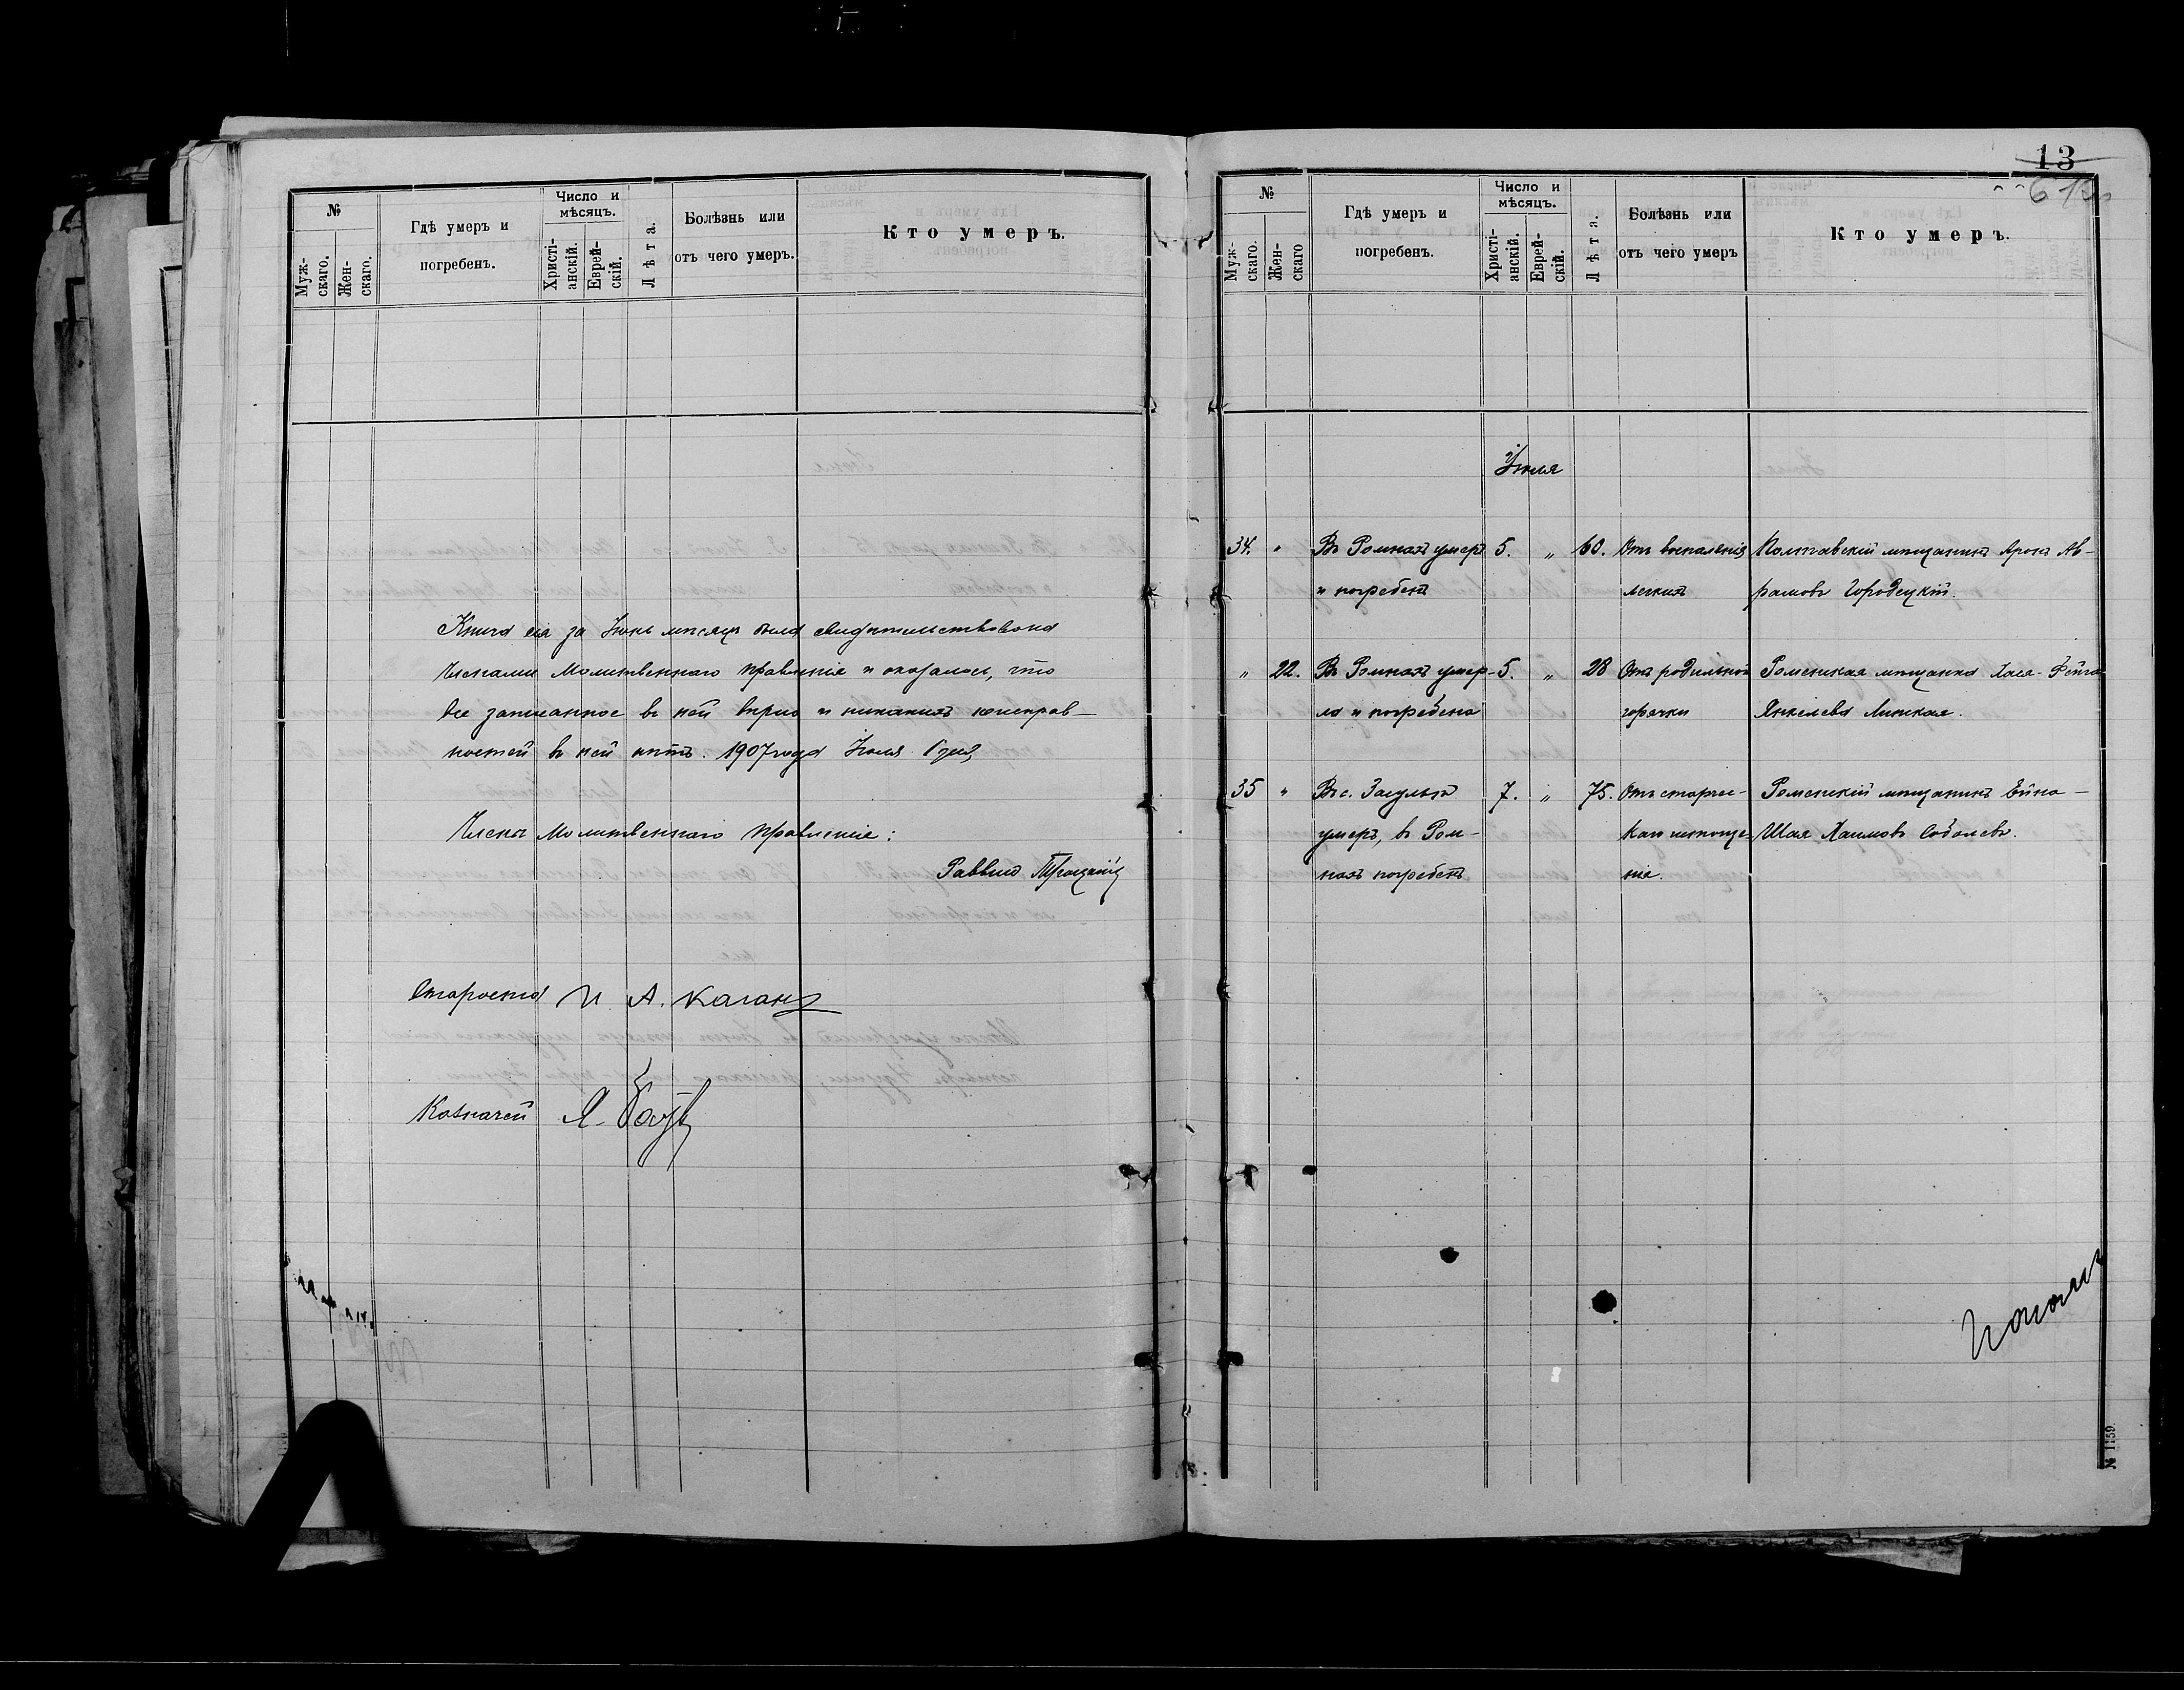 №
Муж-
скаго.
Жен-
скаго.
Гдѣ умеръ и
погребенъ.
Число и
мѣсяцъ.
Христі-
анскій.
Еврей-
скій.
Лѣта.
Болѣзнь или
отъ чего умеръ.
Кто умеръ.
Книга сія за Іюнь мѣсяцъ была свидѣтельствована
Членами Молитвеннаго правленія и оказалось, что
все записанное въ ней вѣрно и никакихъ неисправ-
ностей въ ней нѣтъ. 1907 года Іюля дня
Члены Молитвеннаго правленія:
Раввинъ
Староста И. А. Каганъ
Казначей Я.
13
№
Муж-
скаго.
Жен-
скаго
Гдѣ умеръ и
погребенъ.
Число и
мѣсяцъ.
Христі-
анскій.
Еврей-
скій.
Лѣта.
Болѣзнь или
отъ чего умеръ
Кто умеръ.
Іюля
34. " Въ Ромнахъ умеръ 5. " 60. Отъ воспаленія Полтавскій мѣщанинъ Аронъ Ав-
и погребенъ легкихъ рамовъ Городецкій.
" 22. Въ Ромнахъ умер- 5. " 28 Отъ родильной Роменская мѣщанка Хася-Фейга
ла и погребена горячки Янкелева Липкая.
35 " Въ с. Засульѣ 7. " 75. Отъ старчес- Роменскій мѣщанинъ
умеръ, въ Ром- каго истоще- Шая Хаимовъ Соболевъ.
нахъ погребенъ нія.
№ 1159.